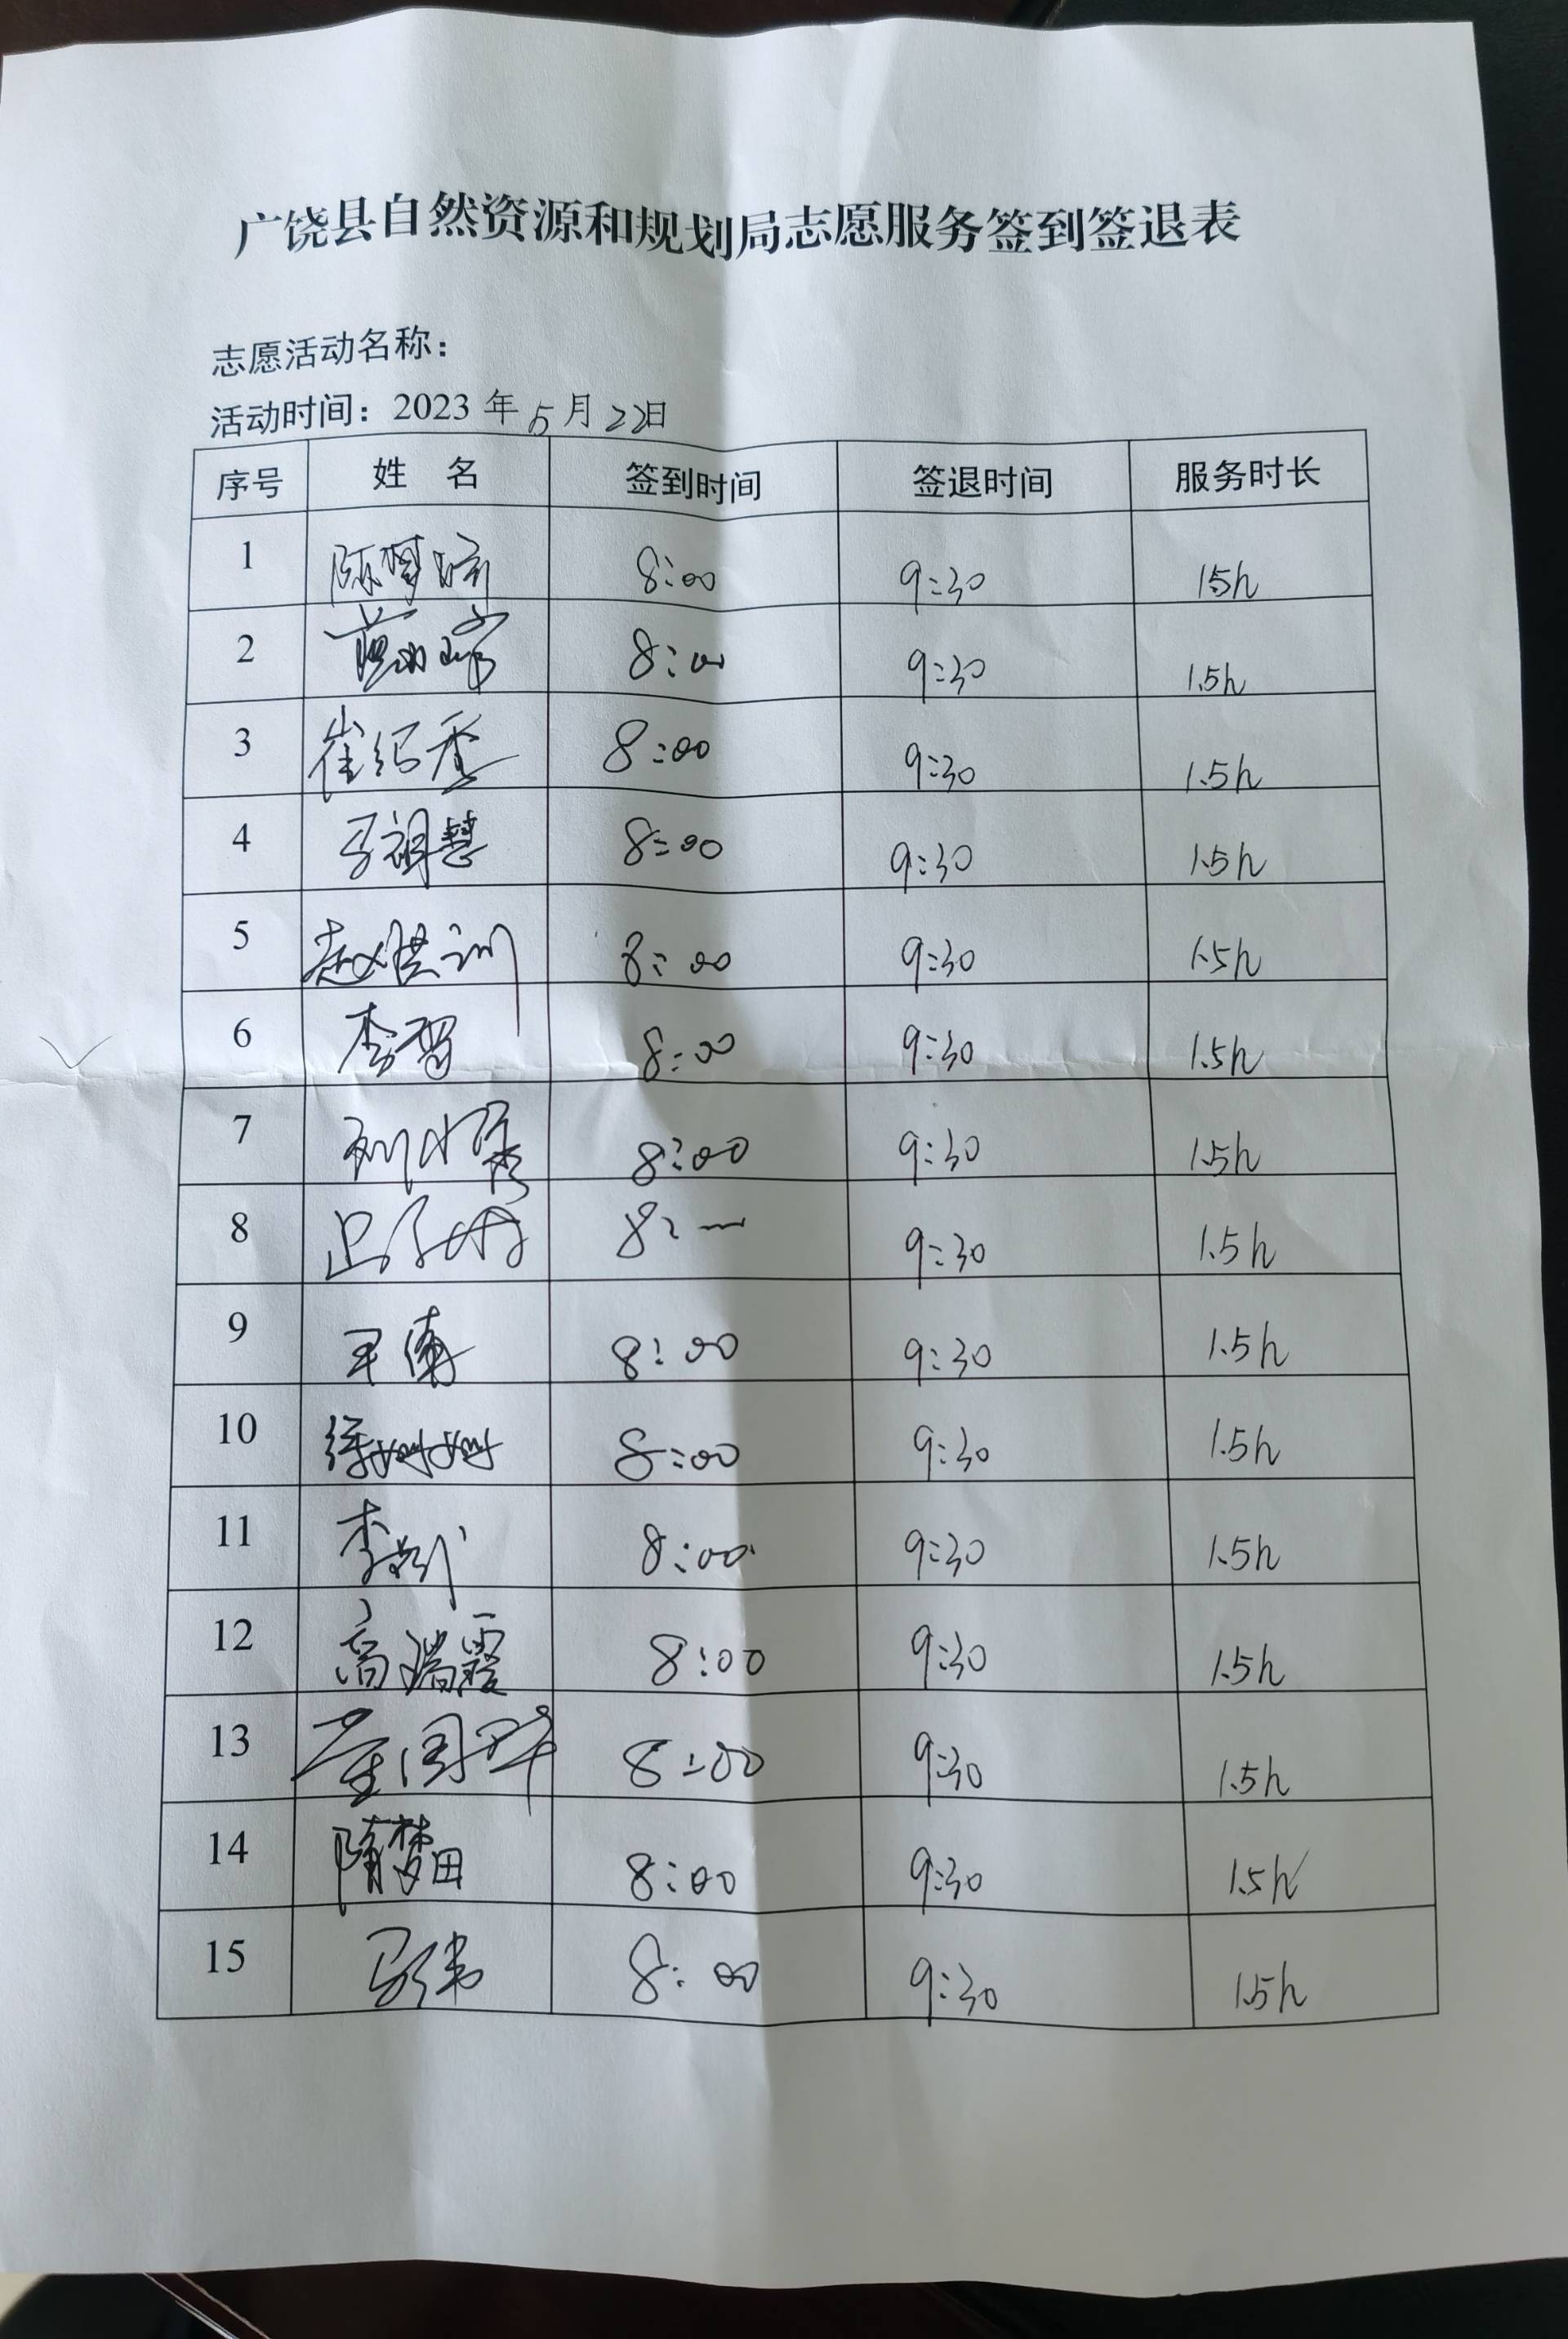 广饶县自然资源和规划局志愿服务签到签退表
志愿活动名称：
活动时间：2023 年 5 月 22日
序号 姓 名 签到时间 签退时间 服务时长
1 8:00 9:30 15h
2 8:00 9:30 1.5h
3 崔绍香 8:00 9:30 1.5h
4 马祖慧 8:00 9:30 1.5h
5 赵洪训 8:00 9:30 1.5h
6 8:00 9:30 1.5h
7 8:00 9:30 1.5h
8 9:30 1.5h
9 王倩 8:00 9:30 1.5h
10 徐姗姗 8:00 9:30 1.5h
11 8:00 9:30 1.5h
12 高瑞霞 8:00 9:30 1.5h
13 8:00 9:30 1.5h
14 隋梦田 8:00 9:30 1.5h
15 马伟 8:00 9:30 1.5h